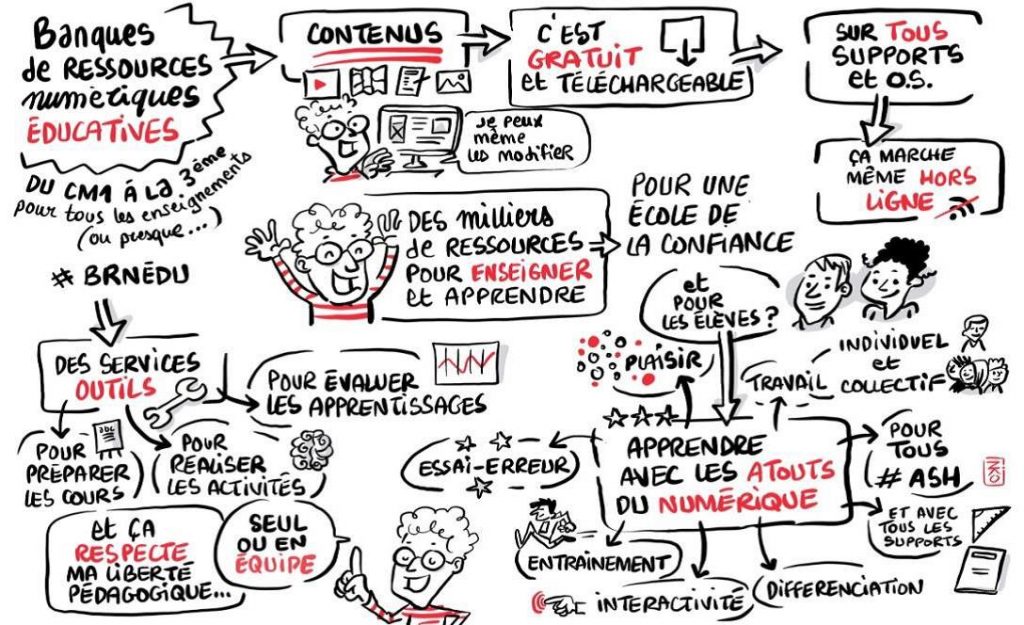 Banques
de RESSOURCES
numériques
ÉDUCATIVES
DU CM1 À LA 3ème
pour tous les enseignements
(ou presque...)
# BRNÉDU
CONTENUS
Je peux
même
les modifier
C'EST
GRATUIT
et TÉLÉCHARGEABLE
SUR TOUS
SUPPORTS
et O.S.
ÇA MARCHE
MÊME HORS
LIGNE
DES milliers
de RESSOURCES
POUR ENSEIGNER
et APPRENDRE
POUR UNE
ÉCOLE DE
LA CONFIANCE
et
POUR
LES ÉLÈVES ?
DES SERVICES
OUTILS
POUR ÉVALUER
LES APPRENTISSAGES
abc
POUR
PRÉPARER
LES COURS
POUR
RÉALISER
LES ACTIVITÉS
et ÇA
RESPECTE
MA LIBERTÉ
PÉDAGOGIQUE...
SEUL
OU EN
ÉQUIPE
APPRENDRE
AVEC LES ATOUTS
DU NUMÉRIQUE
PLAISIR
TRAVAIL
INDIVIDUEL
et
COLLECTIF
ESSAI-ERREUR
POUR
TOUS
# ASH
ET AVEC
TOUS LES
SUPPORTS
ENTRAÎNEMENT
INTERACTIVITÉ
DIFFERENCIATION